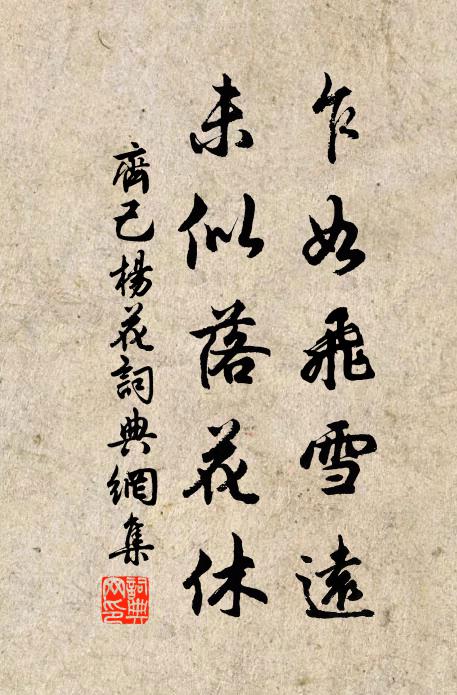 乍如飛雪遠
未似落花休
齊己楊花詞典網集
詞典網印